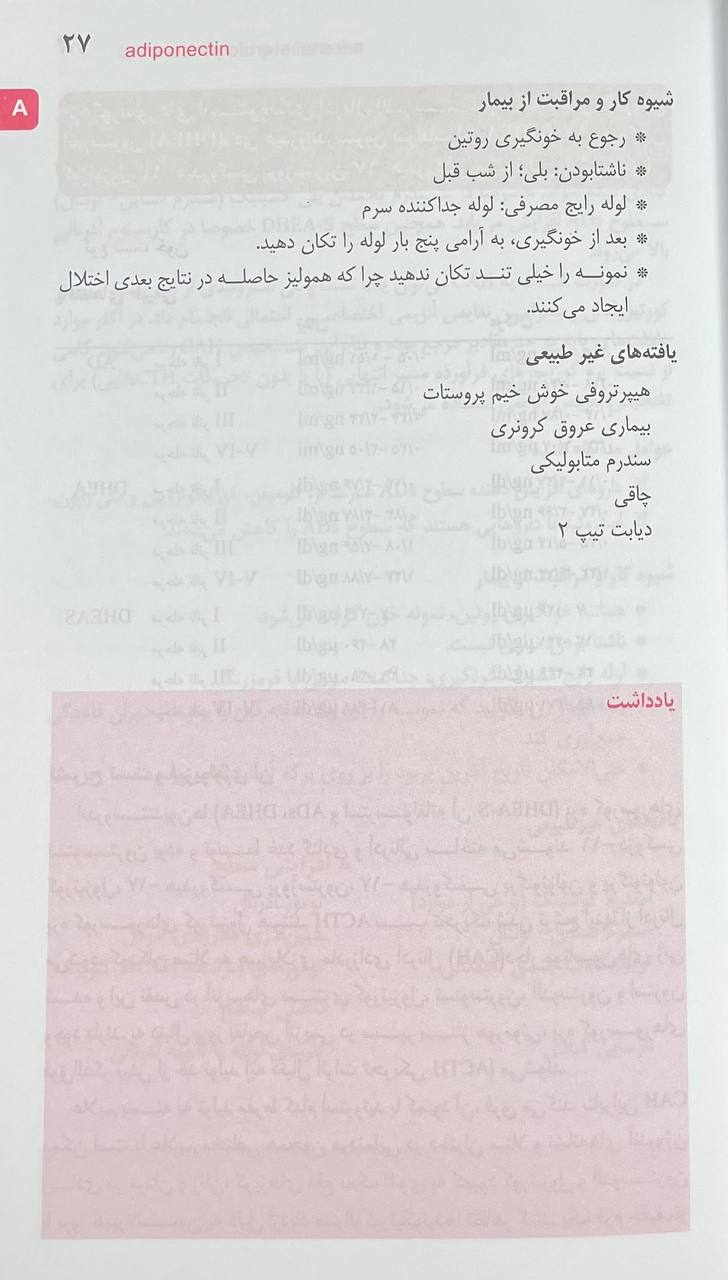 ۲۷ adiponectin
A
شیوه کار و مراقبت از بیمار
* رجوع به خونگیری روتین
* ناشتابودن: بلی؛ از شب قبل
* لوله رایج مصرفی: لوله جداکننده سرم
* بعد از خونگیری، به آرامی پنج بار لوله را تکان دهید.
* نمونـــه را خیلی تنــد تکان ندهید چرا که همولیز حاصلـــه در نتایج بعدی اختلال
ایجاد می‌کنند.
یافته‌های غیر طبیعی
هیپرتروفی خوش خیم پروستات
بیماری عروق کرونری
سندرم متابولیکی
چاقی
دیابت تیپ ۲
یادداشت